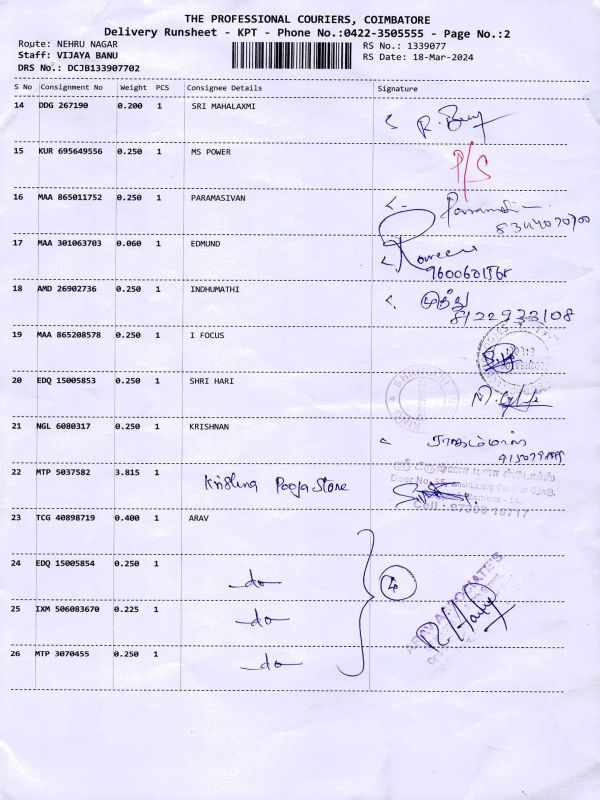 THE PROFESSIONAL COURIERS, COIMBATORE
Delivery Runsheet - KPT - Phone No.:0422-3505555 - Page No.:2
Route: NEHRU NAGAR
RS No.: 1339077
Staff: VIJAYA BANU
RS Date: 18-Mar-2024
DRS No.: DCJB133907702
S No Consignment No Weight PCS Consignee Details Signature
14 DDG 267190 0.200 1 SRI MAHALAXMI
15 KUR 695649556 0.250 1 MS POWER P/S
16 MAA 865011752 0.250 1 PARAMASIVAN
17 MAA 301063703 0.060 1 EDMUND
18 AMD 26902736 0.250 1 INDHUMATHI முத்து
8122933108
19 MAA 865208578 0.250 1 I FOCUS
20 EDQ 15005853 0.250 1 SHRI HARI
21 NGL 6080317 0.250 1 KRISHNAN
22 MTP 5037582 3.815 1 Krishna Pooja Store
Door No. 55,
Cell :
23 TCG 40898719 0.400 1 ARAV
24 EDQ 15005854 0.250 1 do 4
25 IXM 506083670 0.225 1 do
26 MTP 3070455 0.250 1 do